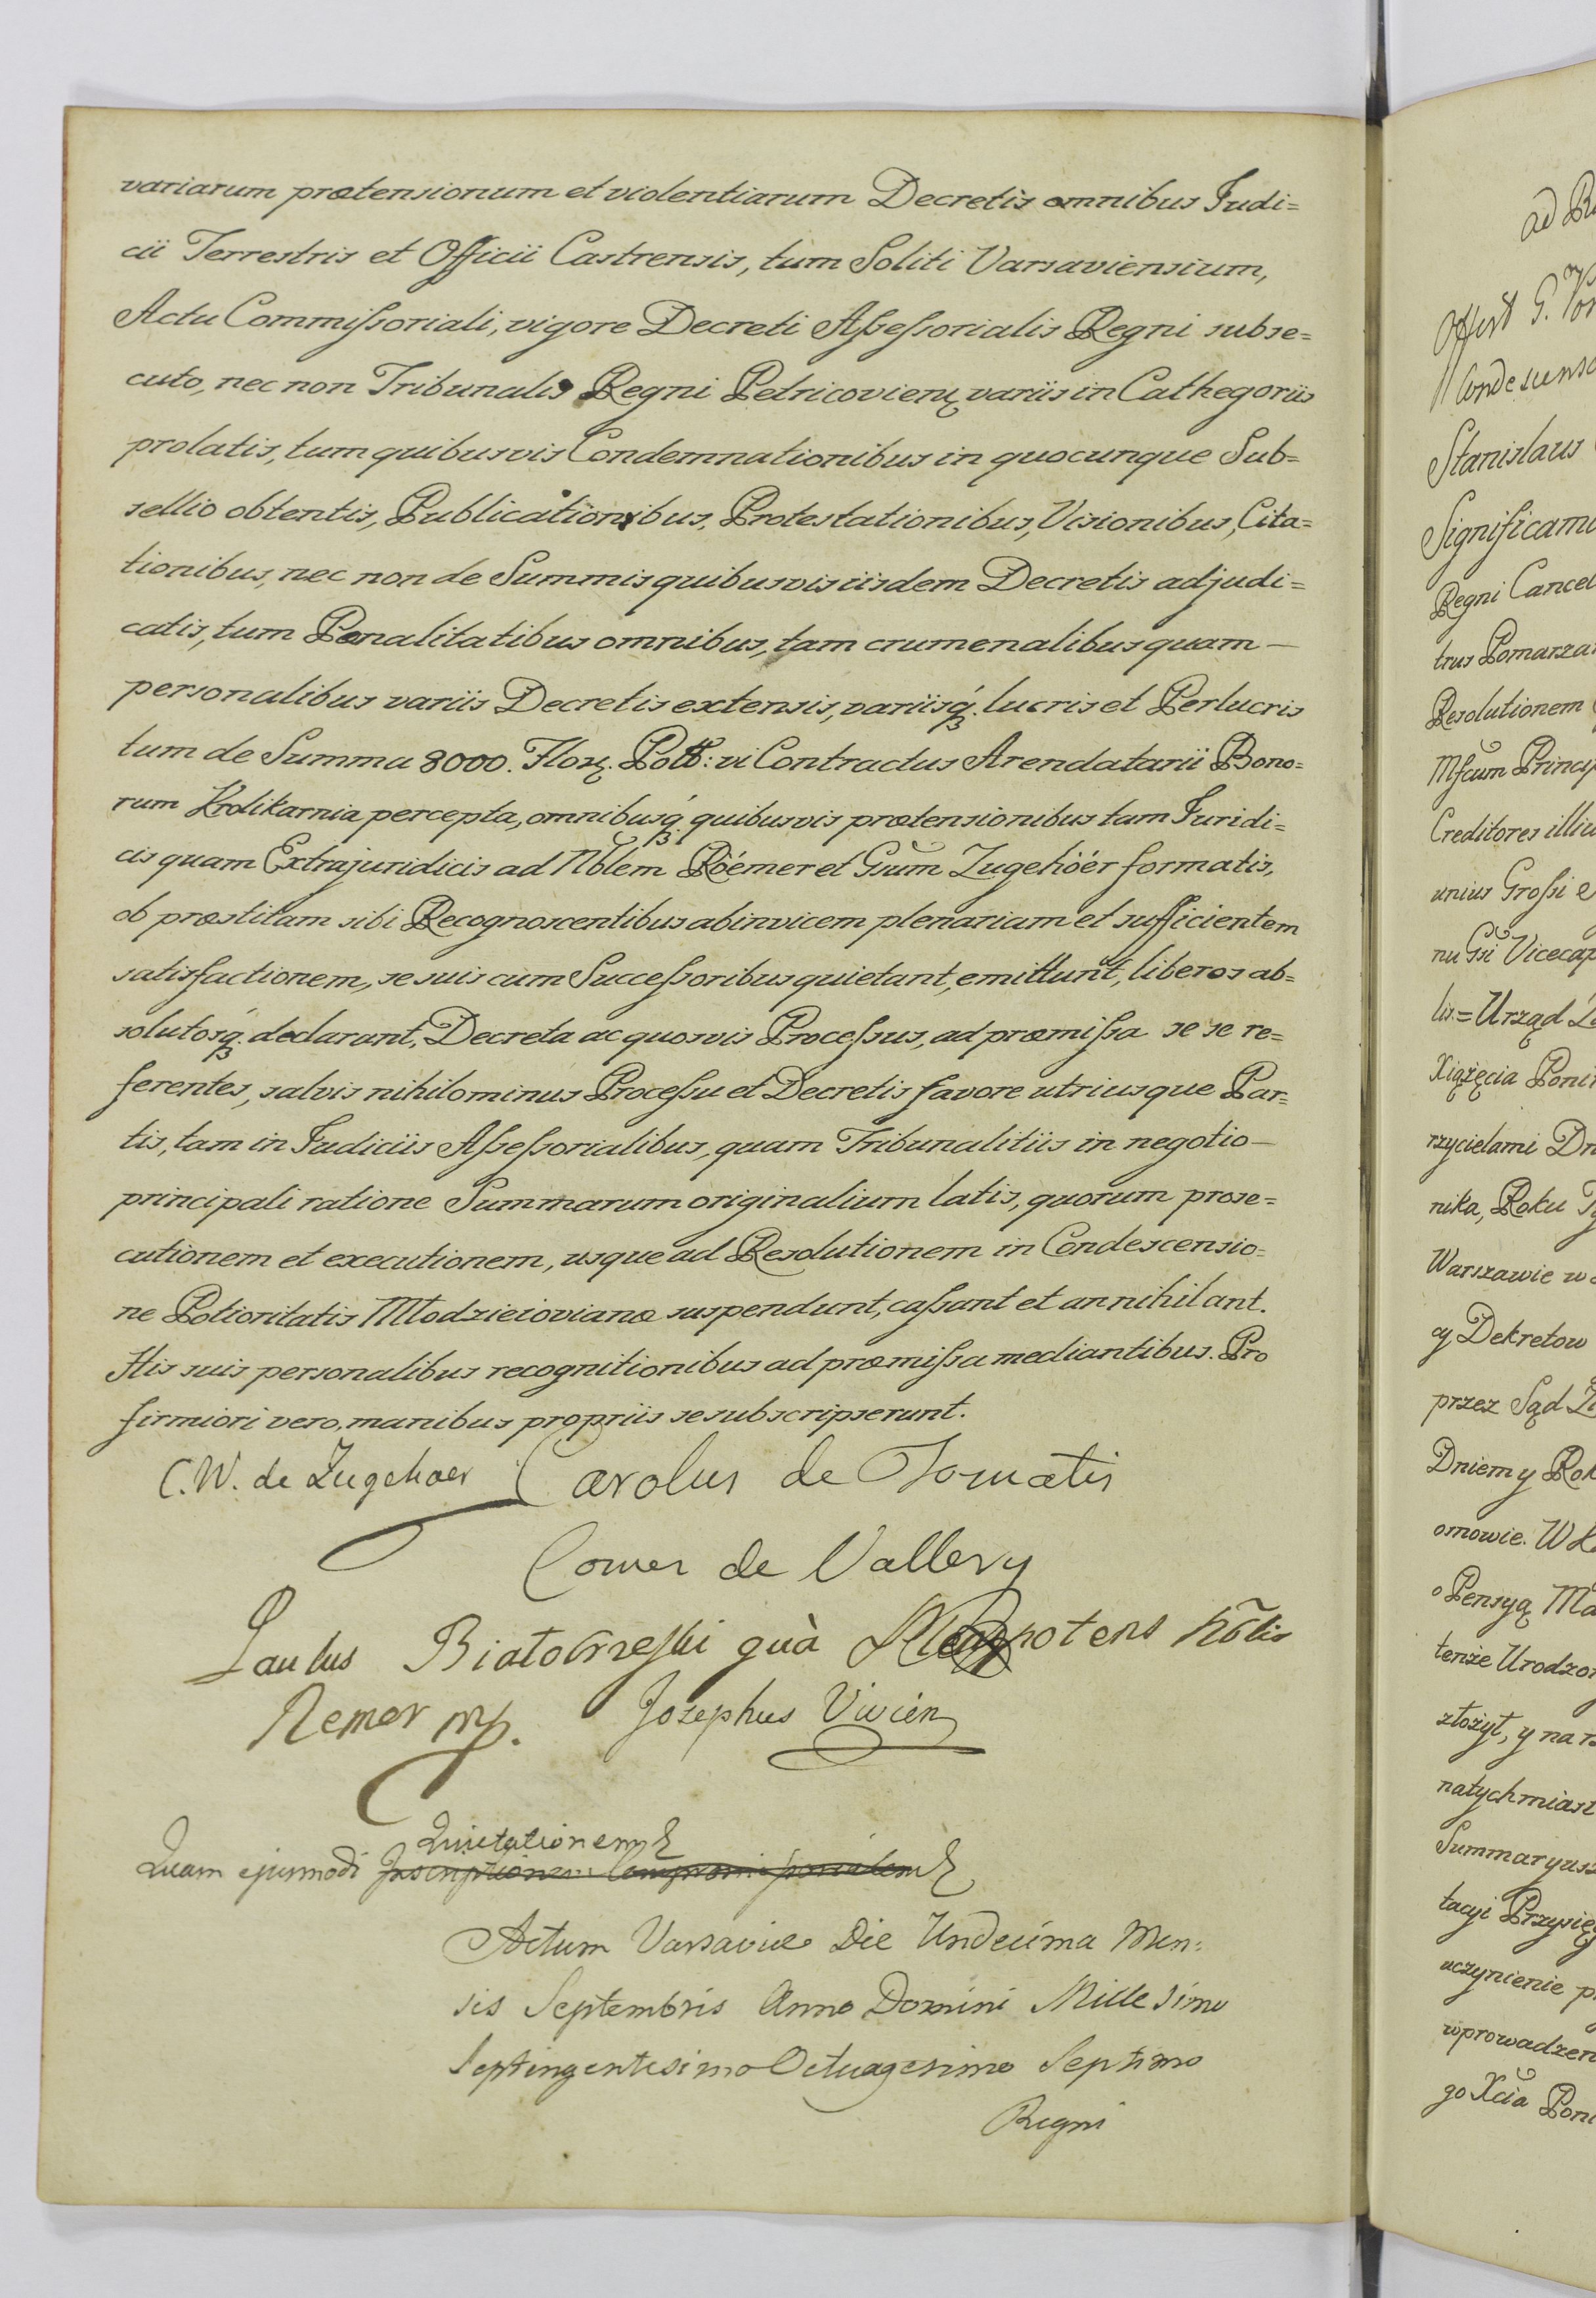 variarum prætensionum et violentiarum Decretis omnibus Judi=
cii Terrestris et Officii Castrensis, tum Soliti Varsaviensium,
Actu Commiſsoriali, vigore Decreti Aſseſsorialis Regni subse=
cuto, nec non Tribunalis Regni Petricovien, variis in Cathegoriis
prolatis, tum quibusvis Condemnationibus in quocunque Sub=
sellio obtentis, Publicationibus, Protestationibus, Visionibus, Cita=
tionibus, nec non de Summis quibusvis iisdem Decretis adjudi=
catis, tum Pœnalitatibus omnibus, tam crumenalibus quam —
personalibus variis Decretis extensis, variisq́. lucris et Perlucris
tum de Summa 8000. Flor. Poll: vi Contractus Arendatarii Bono=
rum Krolikarnia percepta, omnibusq́. quibusvis prætensionibus tam Juridi=
cis quam Extrajuridicis ad Nblem Röémer et Gsum Zugehöér formatis,
ob præstitam sibi Recognoscentibus abinvicem plenariam et sufficientem
satisfactionem, se suis cum Succeſsoribus quietant, emittunt, liberos ab=
solutosq́. declarant, Decreta ac quosvis Proceſsus, ad præmiſsa se se re=
ferentes, salvis nihilominus Proceſsu et Decretis favore utriusque Par=
tis, tam in Judiciis Aſseſsorialibus, quam Tribunalitiis in negotio —
principali ratione Summarum originalium latis, quorum prose=
cutionem et executionem, usque ad Resolutionem in Condescensio=
ne Potioritatis Młodzieiovianæ suspendunt, caſsant et annihilant.
His suis personalibus recognitionibus ad præmiſsa mediantibus. Pro
firmiori vero, manibus propriis se subscripserunt.
C. W. de Zugehoer Carolus de Tomatis
Comes de Vallery
Paulus Białobrzeski quà Plenipotens Nõblis
Remer mp. Josephus Vivien
Quietationem
Quam ejusmodi Inscriptionem Compromiſsorialem
Actum Varsaviæ Die Undecima Men:
sis Septembris Anno Domini Millesimo
Septingentesimo Octuagesimo Septimo
Regni
Stanislaus
Significamu
Regni Cancel
trus Pomarza
Resolutionem
Mſcum Princip
Creditores illiu
unius Groſsi e
nu Gsi Vicecap
lis = Urząd
Xiążęcia Poni
rzycielami Dn
nika, Roku
Warszawie w
y Dekretow
przez Sąd
Dniem y Rok
omowie. W
o Pensyą Ma
tenże Urodzo
złożył, y na
natychmiast
Summaryusz
tacyi Przysię
uczynienie p
wprowadzen
go Xcia Poni